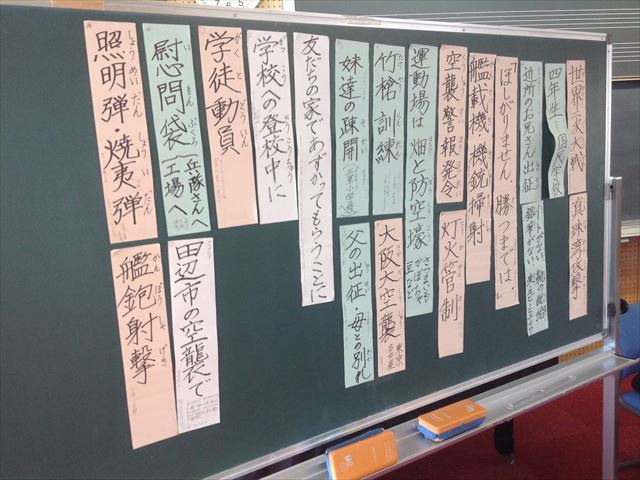 世界二次大戦
真珠湾攻撃
四年生 国民学校
近所のお兄さん出征
鉛筆がない
「ほしがりません 勝つまでは」
艦載機 機銃掃射
空襲警報発令
灯火管制
運動場は 畑と防空壕
さつまいも
かぼちゃ
豆など
竹槍訓練
大阪大空襲
東京
名古屋
妹達の疎開
父の出征・母との別れ
友だちの家であずかってもらうことに
学校への登校中に
学徒動員
慰問袋
兵隊さんへ
工場へ
田辺市の空襲で
照明弾・焼夷弾
艦鉋射撃